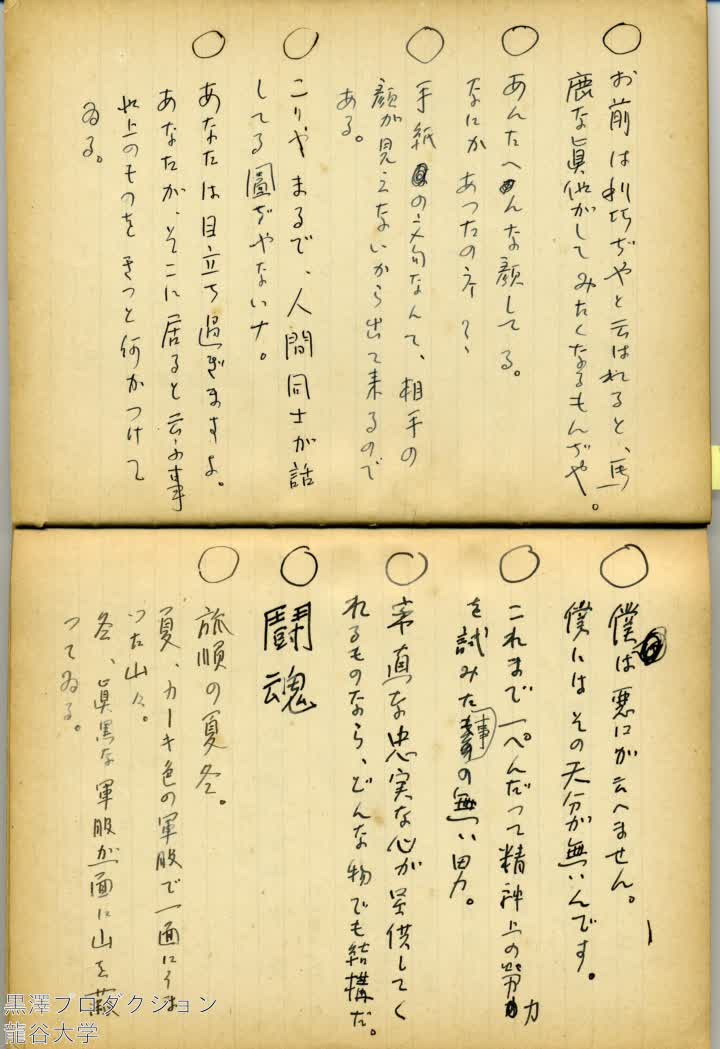 ○ お前は利巧ぢやと云はれると、馬
鹿な真似がしてみたくなるもんぢや。
○ あんたへんな顔してる。
なにかあつたのネ?、
○ 手紙の文句なんて、相手の
顔が見えないから出て来るので
ある。
○ こりやまるで、人間同士が話
してる圖ぢやないナ。
○ あなたは目立ち過ぎますよ。
あなたが、そこに居ると云ふ事
以上のものをきつと何かつけて
ゐる。
○ 僕は悪口が云へません。
僕にはその天分が無いんです。
○ これまで一ぺんだつて精神上の努力
を試みた事の無い男。
○ 率直な忠実な心が提供してく
れるものなら、どんな物でも結構だ。
○ 闘魂
○ 旅順の夏冬。
夏、カーキ色の軍服で一面にうま
つた山々。
冬、眞黒な軍服が一面に山を蔽
つてゐる。
黒澤プロダクション
龍谷大学